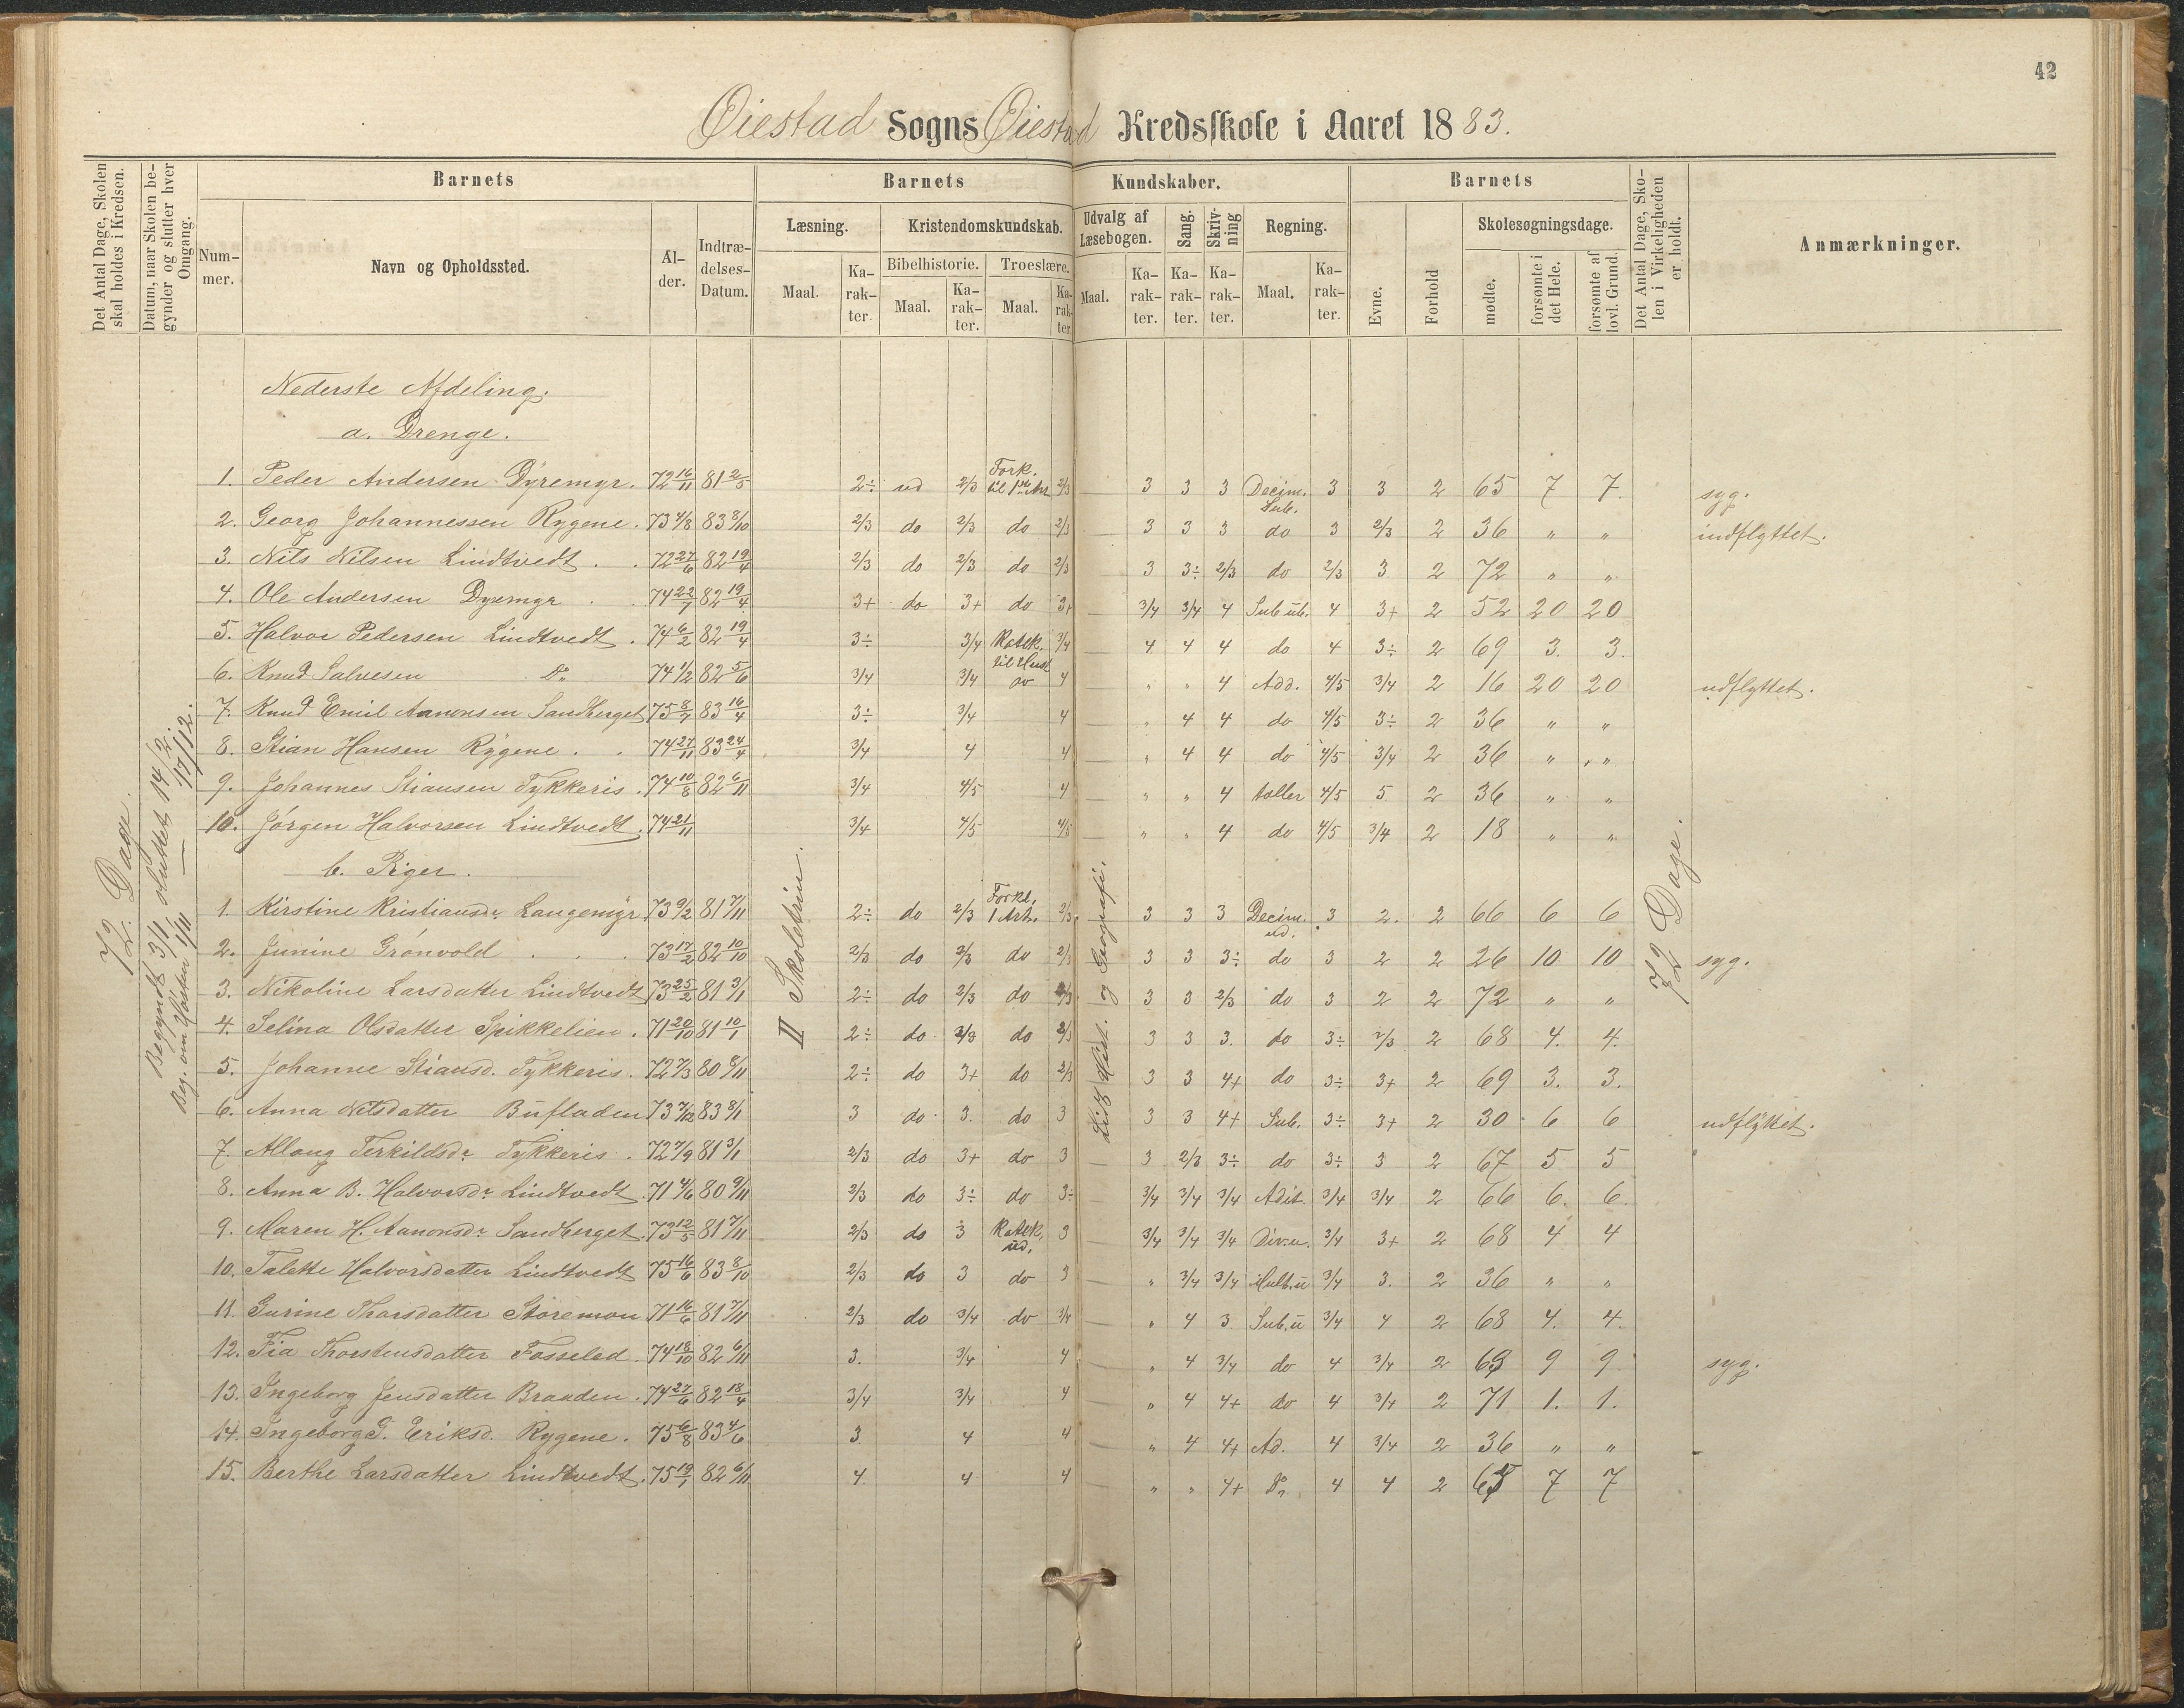 42
Øiestad Sogns Øiestad Kredsskole i Aaret 1883.
Det Antal Dage, Skolen skal holdes i Kredsen.
Datum, naar Skolen begynder og slutter hver Omgang.
Barnets
Nummer.
Navn og Opholdssted.
Alder.
Indtrædelses-Datum.
Barnets Kundskaber.
Læsning.
Maal.
Karakter.
Kristendomskundskab.
Bibelhistorie.
Maal.
Karakter.
Troeslære.
Maal.
Karakter.
Udvalg af Læsebogen.
Maal.
Karakter.
Sang.
Karakter.
Skrivning
Karakter.
Regning.
Maal.
Karakter.
Barnets
Evne.
Forhold
Skolesøgningsdage.
mødte.
forsømte i det Hele.
forsømte af lovl. Grund.
Det Antal Dage, Skolen i Virkeligheden er holdt.
Anmærkninger.
72. Dage.
Begyndt 3/1 sluttet 14/2.
Beg. om Høsten 1/11 — 17/12.
II Skoletrin.
Hist. og Geografi.
72 Dage.
Nederste Afdeling.
a. Drenge.
1. Peder Andersen Dyremyr. 72 16/11 81 2/5 2÷ ud 2/3 Fork. til 1ste Art 2/3 3 3 3 Decim. Sub. 3 3 2 65 7 7. syg.
2. Georg Johannessen Rygene. 73 4/8 83 8/10 2/3 do 2/3 do 2/3 3 3 3 do 3 2/3 2 36 " " indflyttet.
3. Nils Nilsen Lindtvedt . . 72 27/6 82 19/4 2/3 do 2/3 do 2/3 3 3÷ 2/3 do 2/3 3 2 72 " "
4. Ole Andersen Dyremyr . . 74 22/7 82 19/4 3+ do 3+ do 3+ 3/4 3/4 4 Sub ub. 4 3+ 2 52 20 20
5. Halvor Pedersen Lindtvedt . 74 6/2 82 19/4 3÷ 3/4 Katek. 3/4 4 4 4 do 4 3÷ 2 69 3. 3.
6. Knud Salvesen Do 74 1/2 82 5/6 3/4 3/4 4 " " 4 Add. 4/5 3/4 2 16 20 20 udflyttet.
7. Knud Emil Aanonsen Sandberget 75 8/7 83 16/4 3÷ 3/4 4 " 4 4 do 4/5 3÷ 2 36 " "
8. Stian Hansen Rygene . . 74 27/11 83 24/4 3/4 4 4 " 4 4 do 4/5 3/4 2 36 " "
9. Johannes Stiansen Tykkeris . 74 10/8 82 6/11 3/4 4/5 4 " " 4 taller 4/5 5 2 36 " "
10. Jørgen Halvorsen Lindtvedt. 74 21/11 3/4 4/5 4/5 " " 4 do 4/5 3/4 2 18 " "
b. Piger.
1. Kirstine Kristiansdr Langemyr 73 9/2 81 7/11 2÷ do 2/3 Forkl. 1 Art. 2/3 3 3 3 Decim. ud. 3 2. 2 66 6 6
2. Junine Grønvold . . . 73 17/2 82 10/10 2/3 do 2/3 do 2/3 3 3 3÷ do 3 2 2 26 10 10 syg.
3. Nikoline Larsdatter Lindtvedt 73 25/2 81 3/1 2÷ do 2/3 do 2/3 3 3 2/3 do 3 2 2 72 " "
4. Selina Olsdatter Spikkelien . 71 20/10 81 10/1 2÷ do 2/3 do 2/3 3 3 3. do 3÷ 2/3 2 68 4. 4.
5. Johanne Stiansd. Tykkeris. 72 7/3 80 8/11 2÷ do 3+ do 2/3 3 3 4+ do 3÷ 3+ 2 69 3. 3.
6. Anna Nilsdatter Bufladen 73 7/12 83 8/1 3 do 3. do 3 3 3 4+ Sub. 3÷ 3+ 2 30 6 6 udflyttet.
7. Allaug Terkildsdr Tykkeris . 72 7/9 81 3/1 2/3 do 3+ do 3 3 2/3 3÷ do 3÷ 3 2 67 5 5
8. Anna B. Halvorsdr Lindtvedt 71 4/6 80 9/11 2/3 do 3÷ do 3÷ 3/4 3/4 3/4 Adit. 3/4 3/4 2 66 6. 6.
9. Maren H. Aanonsdr Sandberget. 73 12/5 81 7/11 2/3 do 3 Katek, ud. 3 3/4 3/4 3/4 Div.u. 3/4 3+ 2 68 4 4
10. Talette Halvorsdatter Lindtvedt 75 16/6 83 8/10 2/3 do 3 do 3 " 3/4 3/4 Mult.u 3/4 3. 2 36 " "
11. Gurine Thorsdatter Storemon 71 16/6 81 7/11 2/3 do 3/4 do 3/4 " 4 3. Sub.u 3/4 4 2 68 4. 4.
12. Tia Thorstensdatter Fosselod. 74 18/10 82 6/11 3. 3/4 4 " 4 3/4 do 4 3/4 2 63 9 9 syg.
13. Ingeborg Jensdatter Braaden. 74 27/6 82 18/4 3/4 3/4 4 " 4 4+ do 4 3/4 2 71 1. 1.
14. Ingeborg G. Eriksd. Rygene. 75 6/8 83 4/6 3 4 4 " 4 4+ Ad. 4 3/4 2 36 " "
15. Berthe Larsdatter Lindtvedt. 75 19/1 82 6/11 4 4 4 " " 4+ Do 4 4 2 65 7 7